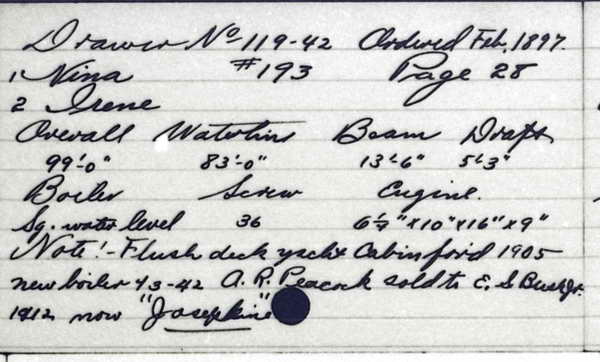 Drawer No 119-42 Ordered Feb, 1897.
1 Nina #193 Page 28
2 Irene
Overall Waterline Beam Draft
99'-0" 83'-0" 13'-6" 5'-3"
Boiler Screw Engine.
Sq. water level 36 6½"x10"x16"x9"
Note!- Flush deck yacht Cabin for'd 1905
new boiler 43-42 A. R. Peacock sold to E. S. Bush Jr.
1912 now "Josephine"